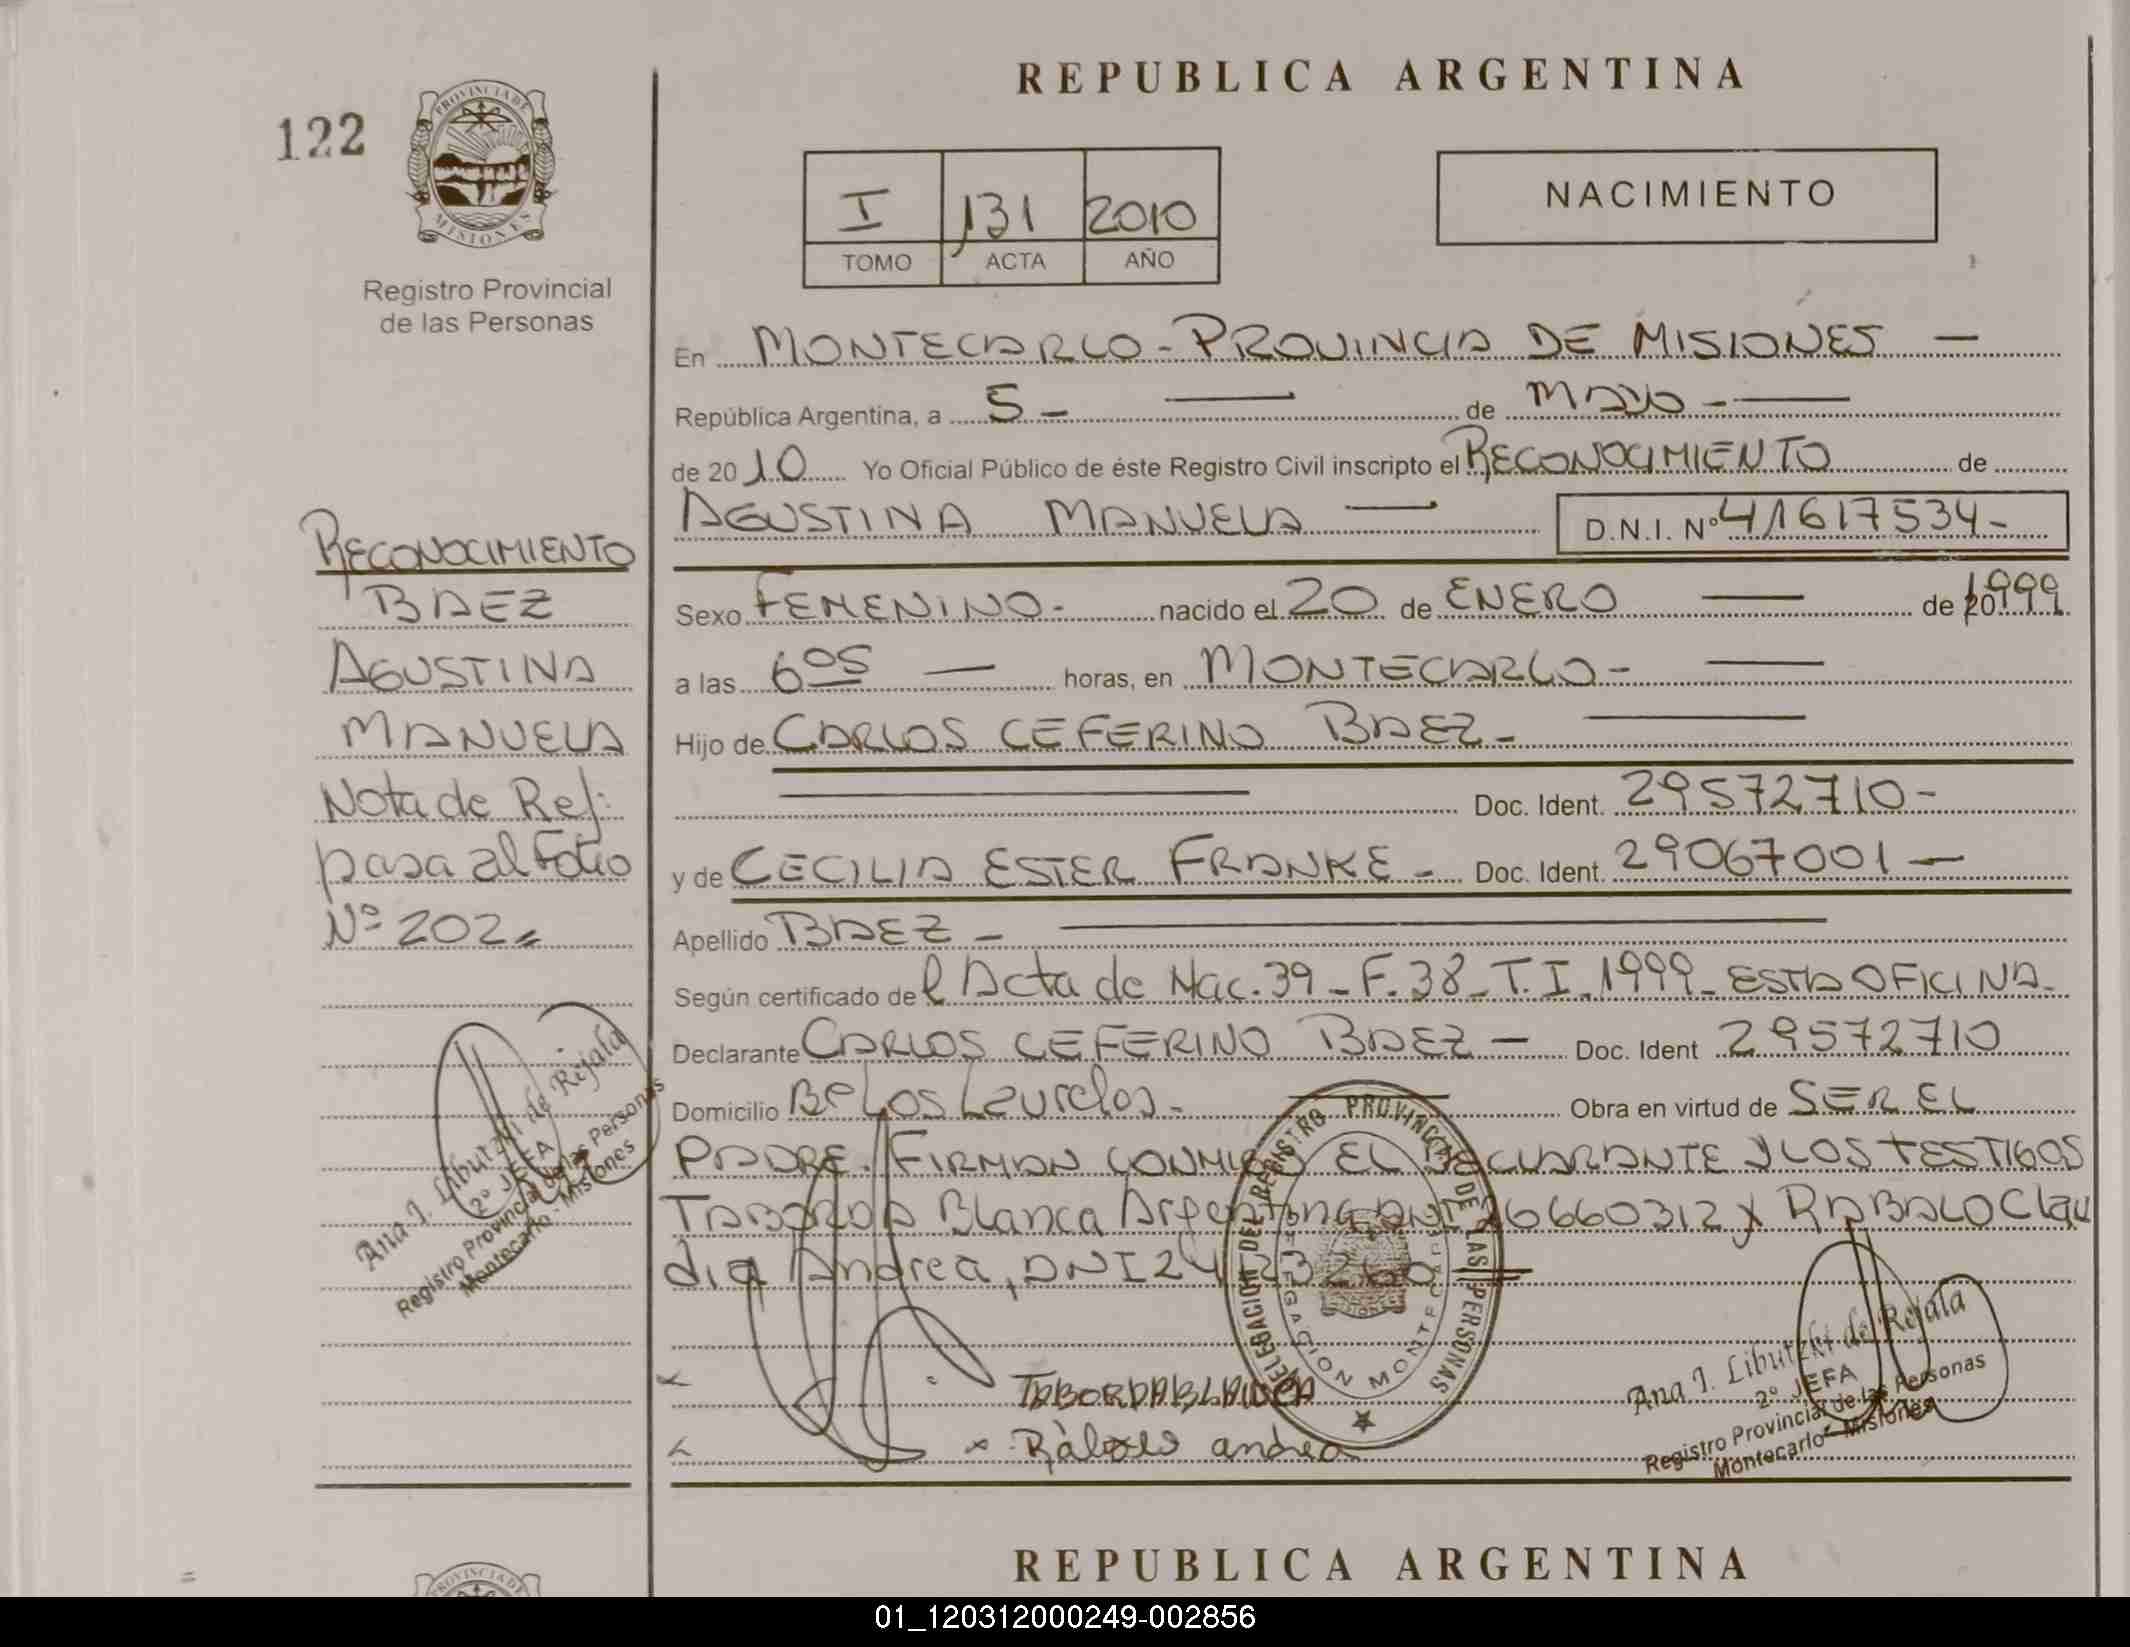 REPUBLICA ARGENTINA
122
PROVINCIA DE
MISIONES
Registro Provincial
de las Personas
I 131 2010
TOMO ACTA AÑO
NACIMIENTO
En MONTECARLO - PROVINCIA DE MISIONES —
República Argentina, a 5 - — de MAYO - —
de 2010 Yo Oficial Público de éste Registro Civil inscripto el RECONOCIMIENTO de
AGUSTINA MANUELA — D.N.I. Nº 41617534-
Sexo FEMENINO.- nacido el 20 de ENERO — de 1999
a las 6 05 — horas, en MONTECARLO - —
Hijo de CARLOS CEFERINO BAEZ - —
— Doc. Ident. 29572710 -
y de CECILIA ESTER FRANKE - Doc. Ident. 29067001 —
Apellido BAEZ - —
Según certificado de l Acta de Nac. 39 - F. 38 - T. I - 1999 - ESTA OFICINA -
Declarante CARLOS CEFERINO BAEZ — Doc. Ident 29572710
Domicilio Bº Los Laureles - Obra en virtud de SER EL
PADRE. FIRMAN CONMIGO EL DECLARANTE Y LOS TESTIGOS
TABORDA Blanca Argentina, DNI 660312 y RABALO Clau
dia Andrea, DNI
TABORDA BLANCA
x Rabalo andrea
RECONOCIMIENTO
BAEZ
AGUSTINA
MANUELA
Nota de Ref:
pasa al Folio
Nº 202
Ana J. Libutzki de Rejala
2º JEFA
Registro Provincial de las Personas
Montecarlo - Misiones
DELEGACION DEL REGISTRO PROVINCIAL DE LAS PERSONAS
Ana J. Libutzki de Rejala
2º JEFA
Registro Provincial de las Personas
Montecarlo - Misiones
REPUBLICA ARGENTINA
01_120312000249-002856